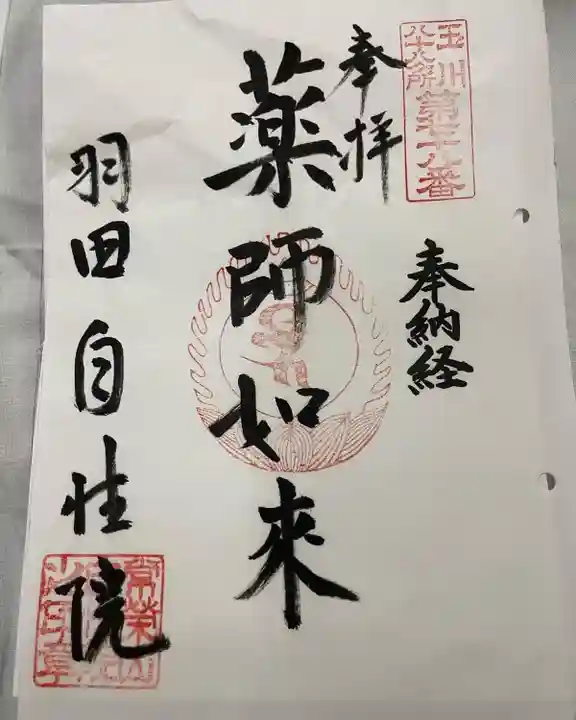 玉川
八十八ヶ所
第七十八番
奉拝
奉納経
薬師如來
羽田自性院